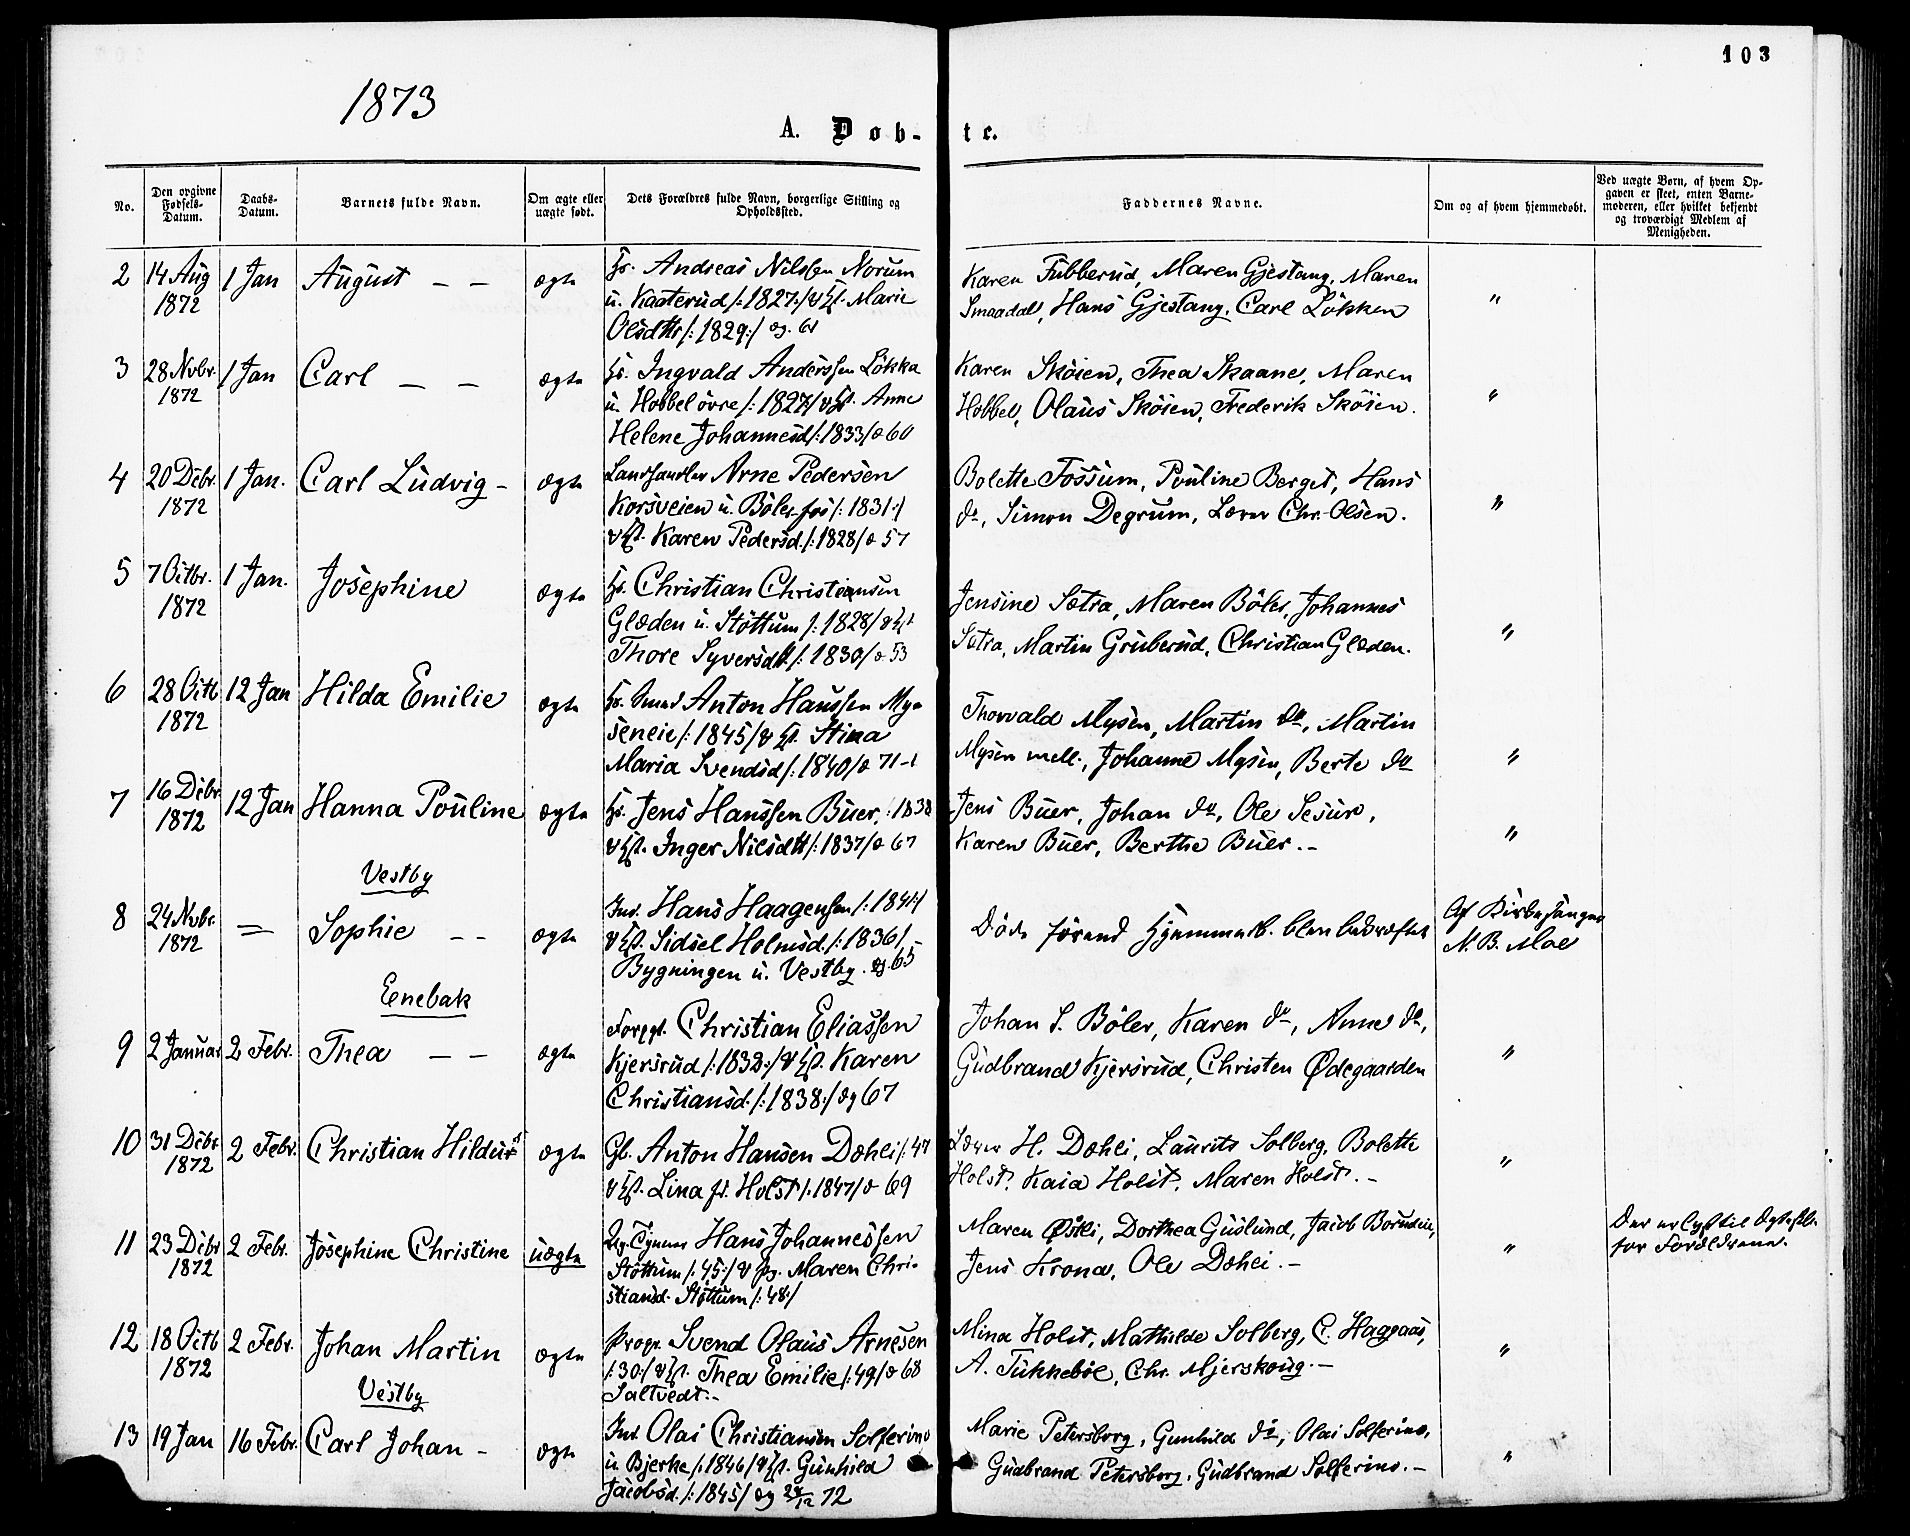 103
1873
A. Døb-te.
No.
Den opgivne Fødsels-Datum.
Daabs-Datum.
Barnets fulde Navn.
Om ægte eller uægte født.
Dets Forældres fulde Navn, borgerlige Stilling og Opholdssted.
Faddernes Navne.
Om og af hvem hjemmedøbt.
Ved uægte Børn, af hvem Opgaven er skeet, enten Barnemoderen, eller hvilket bekjendt og troværdigt Medlem af Menigheden.
2 14 Aug 1872 1 Jan August – – ægte
Andreas Nilssen Norum
u. Kaaterud /:1827:/ & Marie
Olsdttr /:1829:/ og. 61
Karen Tubberud, Maren Gjestang, Maren
Smaadal, Hans Gjestang, Carl Løkken
"
3 28 Nvbr. 1872 1 Jan Carl – – ægte
Ingvald Anderssen Løkka
u. Hobbel övre /:1827/ & Anne
Helene Johannesd /:1833/ 60
Karen Skøien, Thea Skaane, Maren
Hobbel, Olaus Skøien, Frederik Skøien.
"
4 20 Dcbr. 1872 1 Jan. Carl Ludvig – ægte
Landhandler Arne Pedersen
Korsveien u. Bölerfos /:1831:/
& Karen Pedersd. /:1828/ 57
Bolette Fossum, Pouline Berget, Hans
do, Simon Degrum, Lærer Chr. Olsen.
"
5 7 Octbr. 1872 1 Jan. Josephine ægte
Christian Christiansen
Glæden u. Støttum /:1828/ &
Thore Syversdtt /:1830/ 53
Jensine Sætra, Maren Böler, Johannes
Sætra, Martin Gruberud, Christian Glæden.
"
6 28 Octb 1872 12 Jan Hilda Emilie ægte
Smed Anton Hanssen My-
seneie /:1845/ & Stina
Maria Svendsd /:1840/ 71
Thorvald Mysen, Martin do, Martin
Mysen mell., Johanne Mysen, Berte do
"
7 16 Dcbr 1872 12 Jan Hanna Pouline ægte
Jens Hanssen Buer, :1838
& Inger Nilsdtt /:1837/ 67
Jens Buer, Johan do, Ole
Karen Buer, Berthe Buer. –
"
Vestby
8 24 Nvbr. 1872 = Sophie – – ægte
Ind. Hans Haagensen /:1841:/
& Sidsel Holmsd. /:1836/
Bygningen u. Vestby. 65
Døde førend Hjemmed. blev bekræftet
Af Kirkesanger
N. B. Moe
Enebak
9 2 Januar 2 Febr. Thea – – ægte
Forpgt. Christian Eliassen
Kjersrud /:1832:/ & Karen
Christiansd. /:1838:/ og 67
Johan S. Böler, Karen do, Anne do,
Gudbrand Kjersrud, Christen Ødegaarden
"
10 31 Dcbr. 1872 2 Febr. Christian Hildur ægte
Gb. Anton Hansen Dæhli /:47
& Lina f. Holst /:1847/ 69
Lærer H. Dæhli, Laurits Solberg, Bolette
Holst, Kaia Holst, Maren Holst. –
"
11 23 Dcbr 1872 2 Febr. Josephine Christine uægte
Hans Johannessen
Støttum /:45:/ & pg. Maren Chri-
stiansd. Støttum /:48:/
Maren Østli, Dorthea Guslund, Jacob
Jens Krona, Ole Dæhli. –
"
Der er lyst til Ægteskb.
for Forældrene.
12 18 Octb 1872 2 Febr. Johan Martin ægte
Svend Olaus Arnesen
/:30:/ & Thea Emilie /:49/ 68
Saltvedt. –
Mina Holst, Mathilde Solberg, C. Haggaas,
A. Tukkebøl, Chr. Mjerskoug. –
"
Vestby
13 19 Jan 16 Febr. Carl Johan – ægte
Ind. Olai Christiansen Solferino
u Bjerke /:1846/ & Gunhild
Jacobsd. /:1845/ og 72
Marie Petersborg, Gunhild do, Olai Solferino,
Gudbrand Petersborg, Gudbrand Solferino. –
"